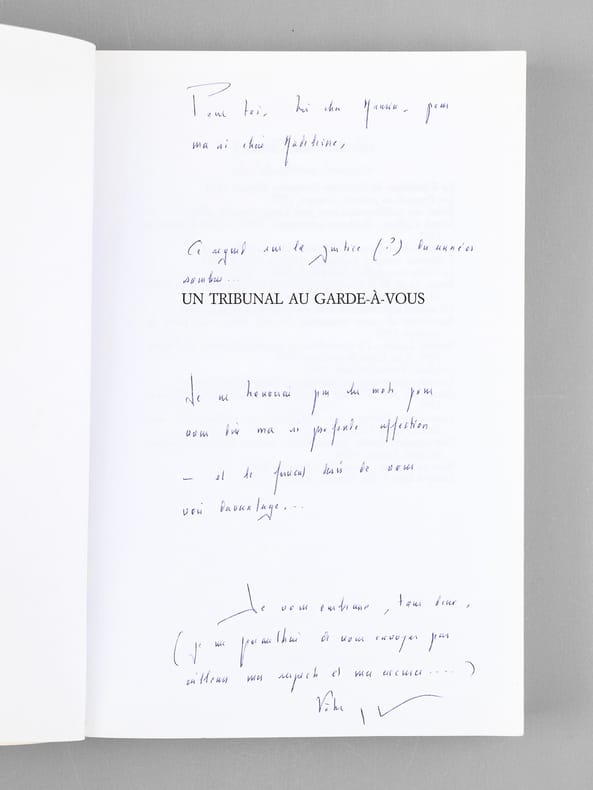 Pour toi, très cher Maurice, pour
ma si chère Madeleine,
Ce regard sur la justice (?) des années
sombres...
UN TRIBUNAL AU GARDE-À-VOUS
Je ne trouverai pas les mots pour
vous dire ma si profonde affection
– et le désir de vous
voir davantage...
Je vous embrasse, tous deux,
(je me permettrai de vous envoyer par
ailleurs mes respects et mes ....)
Votre